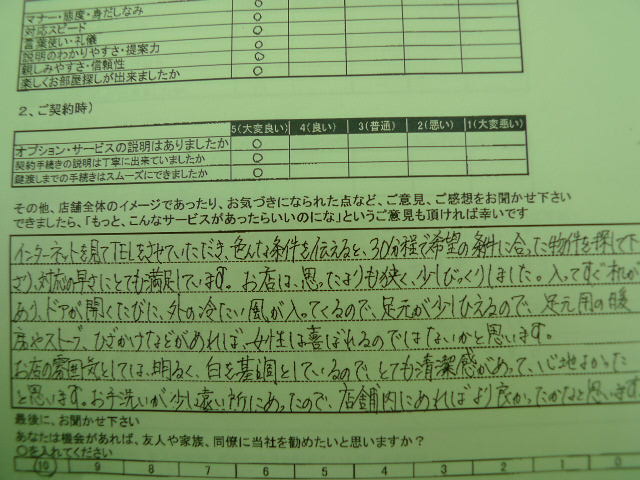 マナー・態度・身だしなみ ○
対応スピード ○
言葉使い・礼儀 ○
説明のわかりやすさ・提案力 ○
親しみやすさ・信頼性 ○
楽しくお部屋探しが出来ましたか ○
2、ご契約時)
5(大変良い) 4(良い) 3(普通) 2(悪い) 1(大変悪い)
オプション・サービスの説明はありましたか ○
契約手続きの説明は丁寧に出来ていましたか ○
鍵渡しまでの手続きはスムーズにできましたか ○
その他、店舗全体のイメージであったり、お気づきになられた点など、ご意見、ご感想をお聞かせ下さい
できましたら、「もっと、こんなサービスがあったらいいのにな」というご意見も頂ければ幸いです
インターネットを見てTELをさせていただき、色んな条件を伝えると、30分程で希望の条件に合った物件を探して下
さり、対応の早さにとても満足しています。お店は、思ったよりも狭く、少しびっくりしました。入ってすぐ机が
あり、ドアが開くたびに、外の冷たい風が入ってくるので、足元が少しひえるので、足元用の暖
房やストーブ、ひざかけなどがあれば、女性は喜ばれるのではないかと思います。
お店の雰囲気としては、明るく、白を基調としているので、とても清潔感があって、心地よかった
と思います。お手洗いが少し遠い所にあったので、店舗内にあればより良かったかなと思います
最後に、お聞かせ下さい
あなたは機会があれば、友人や家族、同僚に当社を勧めたいと思いますか?
○を入れてください
10 9 8 7 6 5 4 3 2 1 0